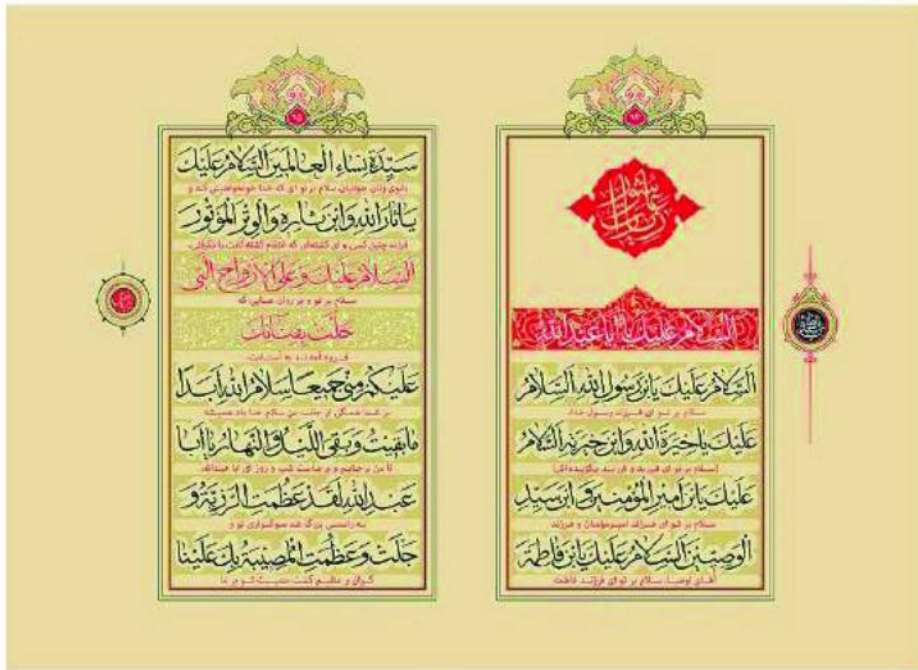 ۶۴
زیارت عاشورا
السلام علیک یا ابا عبدالله
اَلسَّلامُ عَلَیْكَ یَابْنَ رَسُولِ اللهِ اَلسَّلامُ
سلام بر تو ای فرزند رسول خدا،
عَلَیْكَ یا خِیَرَةَ اللهِ وَابْنَ خِیَرَتِهِ اَلسَّلامُ
(سلام بر تو ای گزیده و فرزند برگزیده‌اش)
عَلَیْكَ یَابْنَ اَمیرِالْمُؤْمِنینَ وَ ابْنَ سَیِّدِ
سلام بر تو ای فرزند امیرمؤمنان و فرزند
الْوَصِیّینَ اَلسَّلامُ عَلَیْكَ یَابْنَ فاطِمَةَ
آقای اوصیا، سلام بر تو ای فرزند فاطمه
۶۵
سَیِّدَةِ نِساءِ الْعالَمینَ اَلسَّلامُ عَلَیْكَ
بانوی زنان جهانیان، سلام بر تو ای که خدا خونخواهیش کند و
یا ثارَ اللهِ وَابْنَ ثارِهِ وَالْوِتْرَ الْمَوْتُورَ
اَلسَّلامُ عَلَیْكَ وَ عَلَی الْاَرْواحِ الَّتی
سلام بر تو و بر روان‌هایی که
حَلَّتْ بِفِنائِكَ
فرود آمدند به آستانت،
عَلَیْكُمْ مِنّی جَمیعاً سَلامُ اللهِ اَبَداً
بر شما همگی از جانب من سلام خدا باد همیشه
ما بَقیتُ وَ بَقِیَ اللَّیْلُ وَ النَّهارُ یا اَبا
تا من برجایم و برجاست شب و روز ای ابا عبدالله،
عَبْدِ اللهِ لَقَدْ عَظُمَتِ الرَّزِیَّةُ وَ
به راستی بزرگ شد سوگواری تو و
جَلَّتْ وَ عَظُمَتِ الْمُصیبَةُ بِكَ عَلَیْنا
گران و عظیم گشت مصیبت تو بر ما